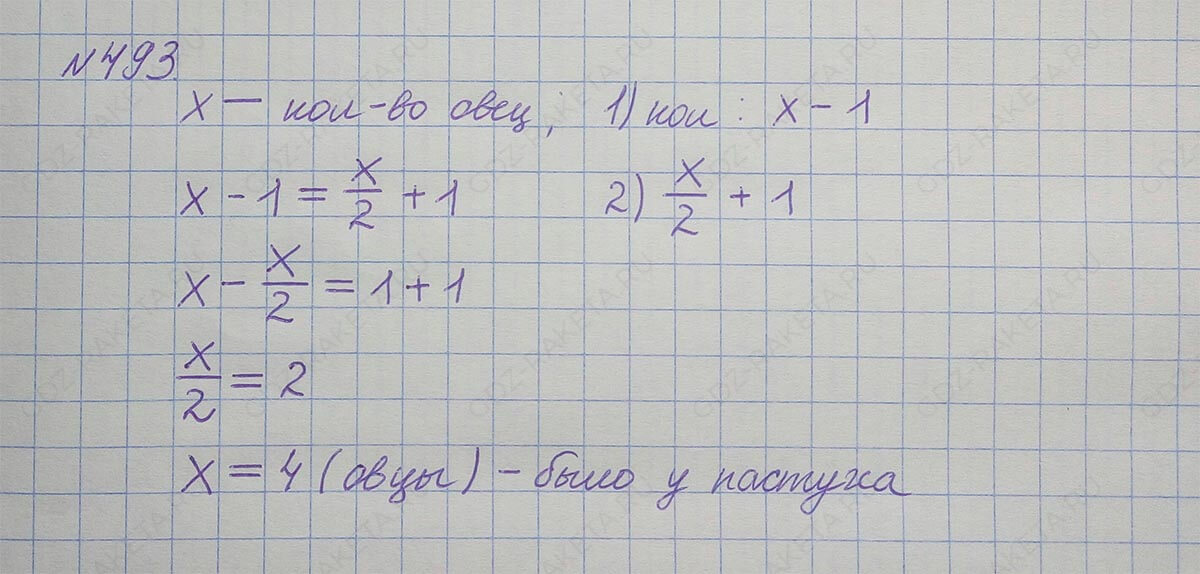 №493
x — кол-во овец; 1) кол: x - 1
x - 1 = x/2 + 1 2) x/2 + 1
x - x/2 = 1 + 1
x/2 = 2
x = 4 (овцы) - было у пастуха
GDZ-RAKETA.RU